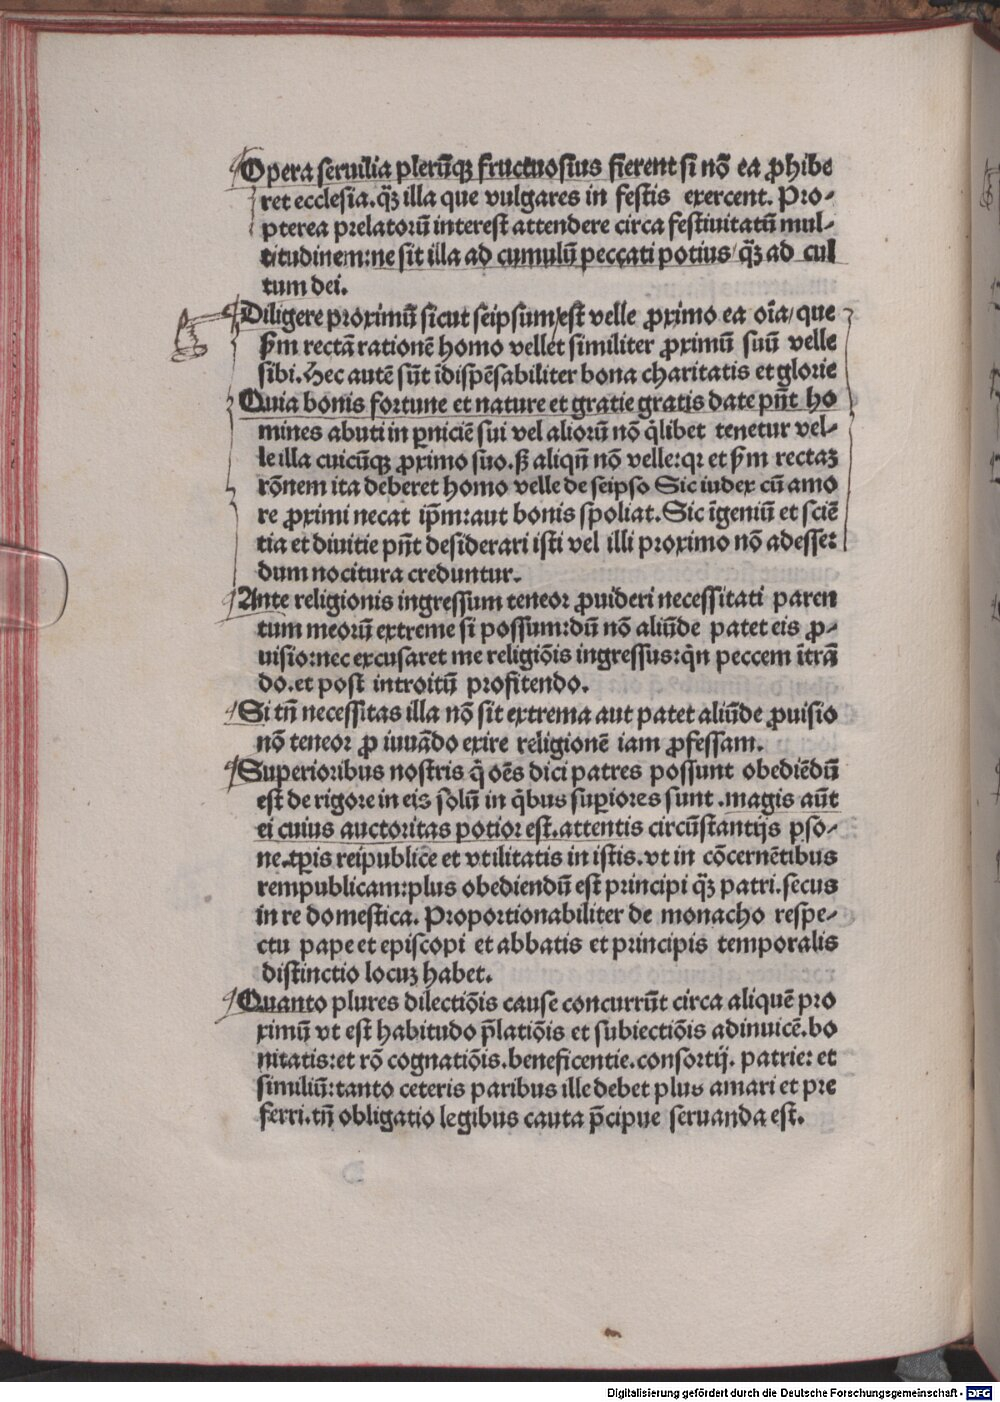 Opera seruilia plerūqꝫ fructuosius fierent si nō ea ꝓhibe
ret ecclesia.q̄ꝫ illa que vulgares in festis exercent. Pro⸗
pterea prelatorū interest attendere circa festiuitatū mul⸗
titudinem:ne sit illa ad cumulū peccati potius/q̄ꝫ ad cul
tum dei.
Diligere proximū sicut seipsum/est velle ꝓximo ea oīa/que
ẜm rectā rationē homo vellet similiter ꝓximū suū velle
sibi.Hec autē sūt īdispēsabiliter bona charitatis et glorie
Quia bonis fortune et nature et gratie gratis date pn̄t ho
mines abuti in ꝑniciē sui vel aliorū nō q̄libet tenetur vel⸗
le illa cuicūqꝫ ꝓximo suo.ß aliqn̄ nō velle:qꝛ et ẜm rectaꝫ
rōnem ita deberet homo velle de seipso Sic iudex cū amo
re ꝓximi necat ip̄m:aut bonis spoliat.Sic īgeniū et sciē
tia et diuitie pn̄t desiderari isti vel illi proximo nō adesse:
dum nocitura creduntur.
Ante religionis ingressum teneor ꝓuideri necessitati paren
tum meorū extreme si possum:dū nō aliūde patet eis ꝓ⸗
uisio:nec excusaret me religiōis ingressus:qn̄ peccem ītrā
do.et post introitū profitendo.
Si tn̄ necessitas illa nō sit extrema aut patet aliūde ꝓuisio
nō teneor ꝓ iuuādo exire religionē iam ꝓfessam.
Superioribus nostris q̄ oēs dici patres possunt obediēdū
est de rigore in eis solū in q̄bus suꝑiores sunt .magis aūt
ei cuius auctoritas potior est.attentis circūstantijs ꝑso⸗
ne.tp̄is reipublice et vtilitatis in istis.vt in cōcernētibus
rempublicam:plus obediendū est principi q̄ꝫ patri.secus
in re domestica. Proportionabiliter de monacho respe⸗
ctu pape et episcopi et abbatis et principis temporalis
distinctio locuꝫ habet.
Quanto plures dilectiōis cause concurrūt circa aliquē pro
ximū vt est habitudo p̄latiōis et subiectiōis adinuicē.bo
nitatis:et rō cognatiōis.beneficentie.consortij. patrie: et
similiū:tanto ceteris paribus ille debet plus amari et pre
ferri.tn̄ obligatio legibus cauta p̄cipue seruanda est.
Digitalisierung gefördert durch die Deutsche Forschungsgemeinschaft - DFG